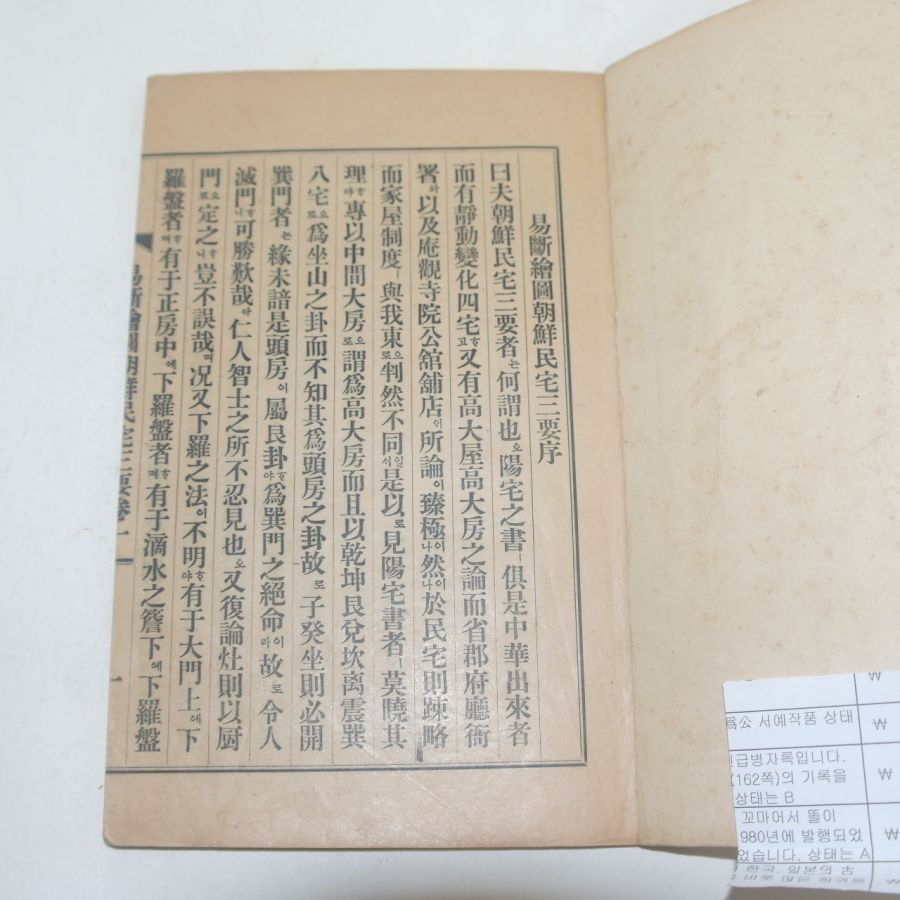 易斷繪圖朝鮮民宅三要序
曰夫朝鮮民宅三要者는何謂也오陽宅之書ㅣ俱是中華出來者
而有靜動變化四宅고又有高大屋高大房之論而省郡府廳衙
署하以及庵觀寺院公舘舖店인所論이臻極이나然이나於民宅則踈略
而家屋制度ㅣ與我東으로判然不同일시是以로見陽宅書者ㅣ莫曉其
理하야專以中間大房으로謂爲高大房而且以乾坤艮兌坎离震巽
八宅으로爲坐山之卦而不知其爲頭房之卦故로子癸坐則必開
巽門者는緣未諳是頭房이屬艮卦하야爲巽門之絕命이라故로令人
滅門하니可勝歎哉아仁人智士之所不忍見也오又復論灶則以厨
門으로定之하니豈不誤哉며况又下羅之法이不明하야有于大門上에下
羅盤者하며有于正房中에下羅盤者하며有于滴水之簷下에下羅盤
易斷繪圖朝鮮民宅三要卷一
一
爲公 서예작품 상태
급병자록입니다.
(162쪽)의 기록을
상태는 B
꼬마어서 똘이
980년에 발행되었
었습니다. 상태는 A
한국, 일본의 古
₩
₩
₩
₩
₩